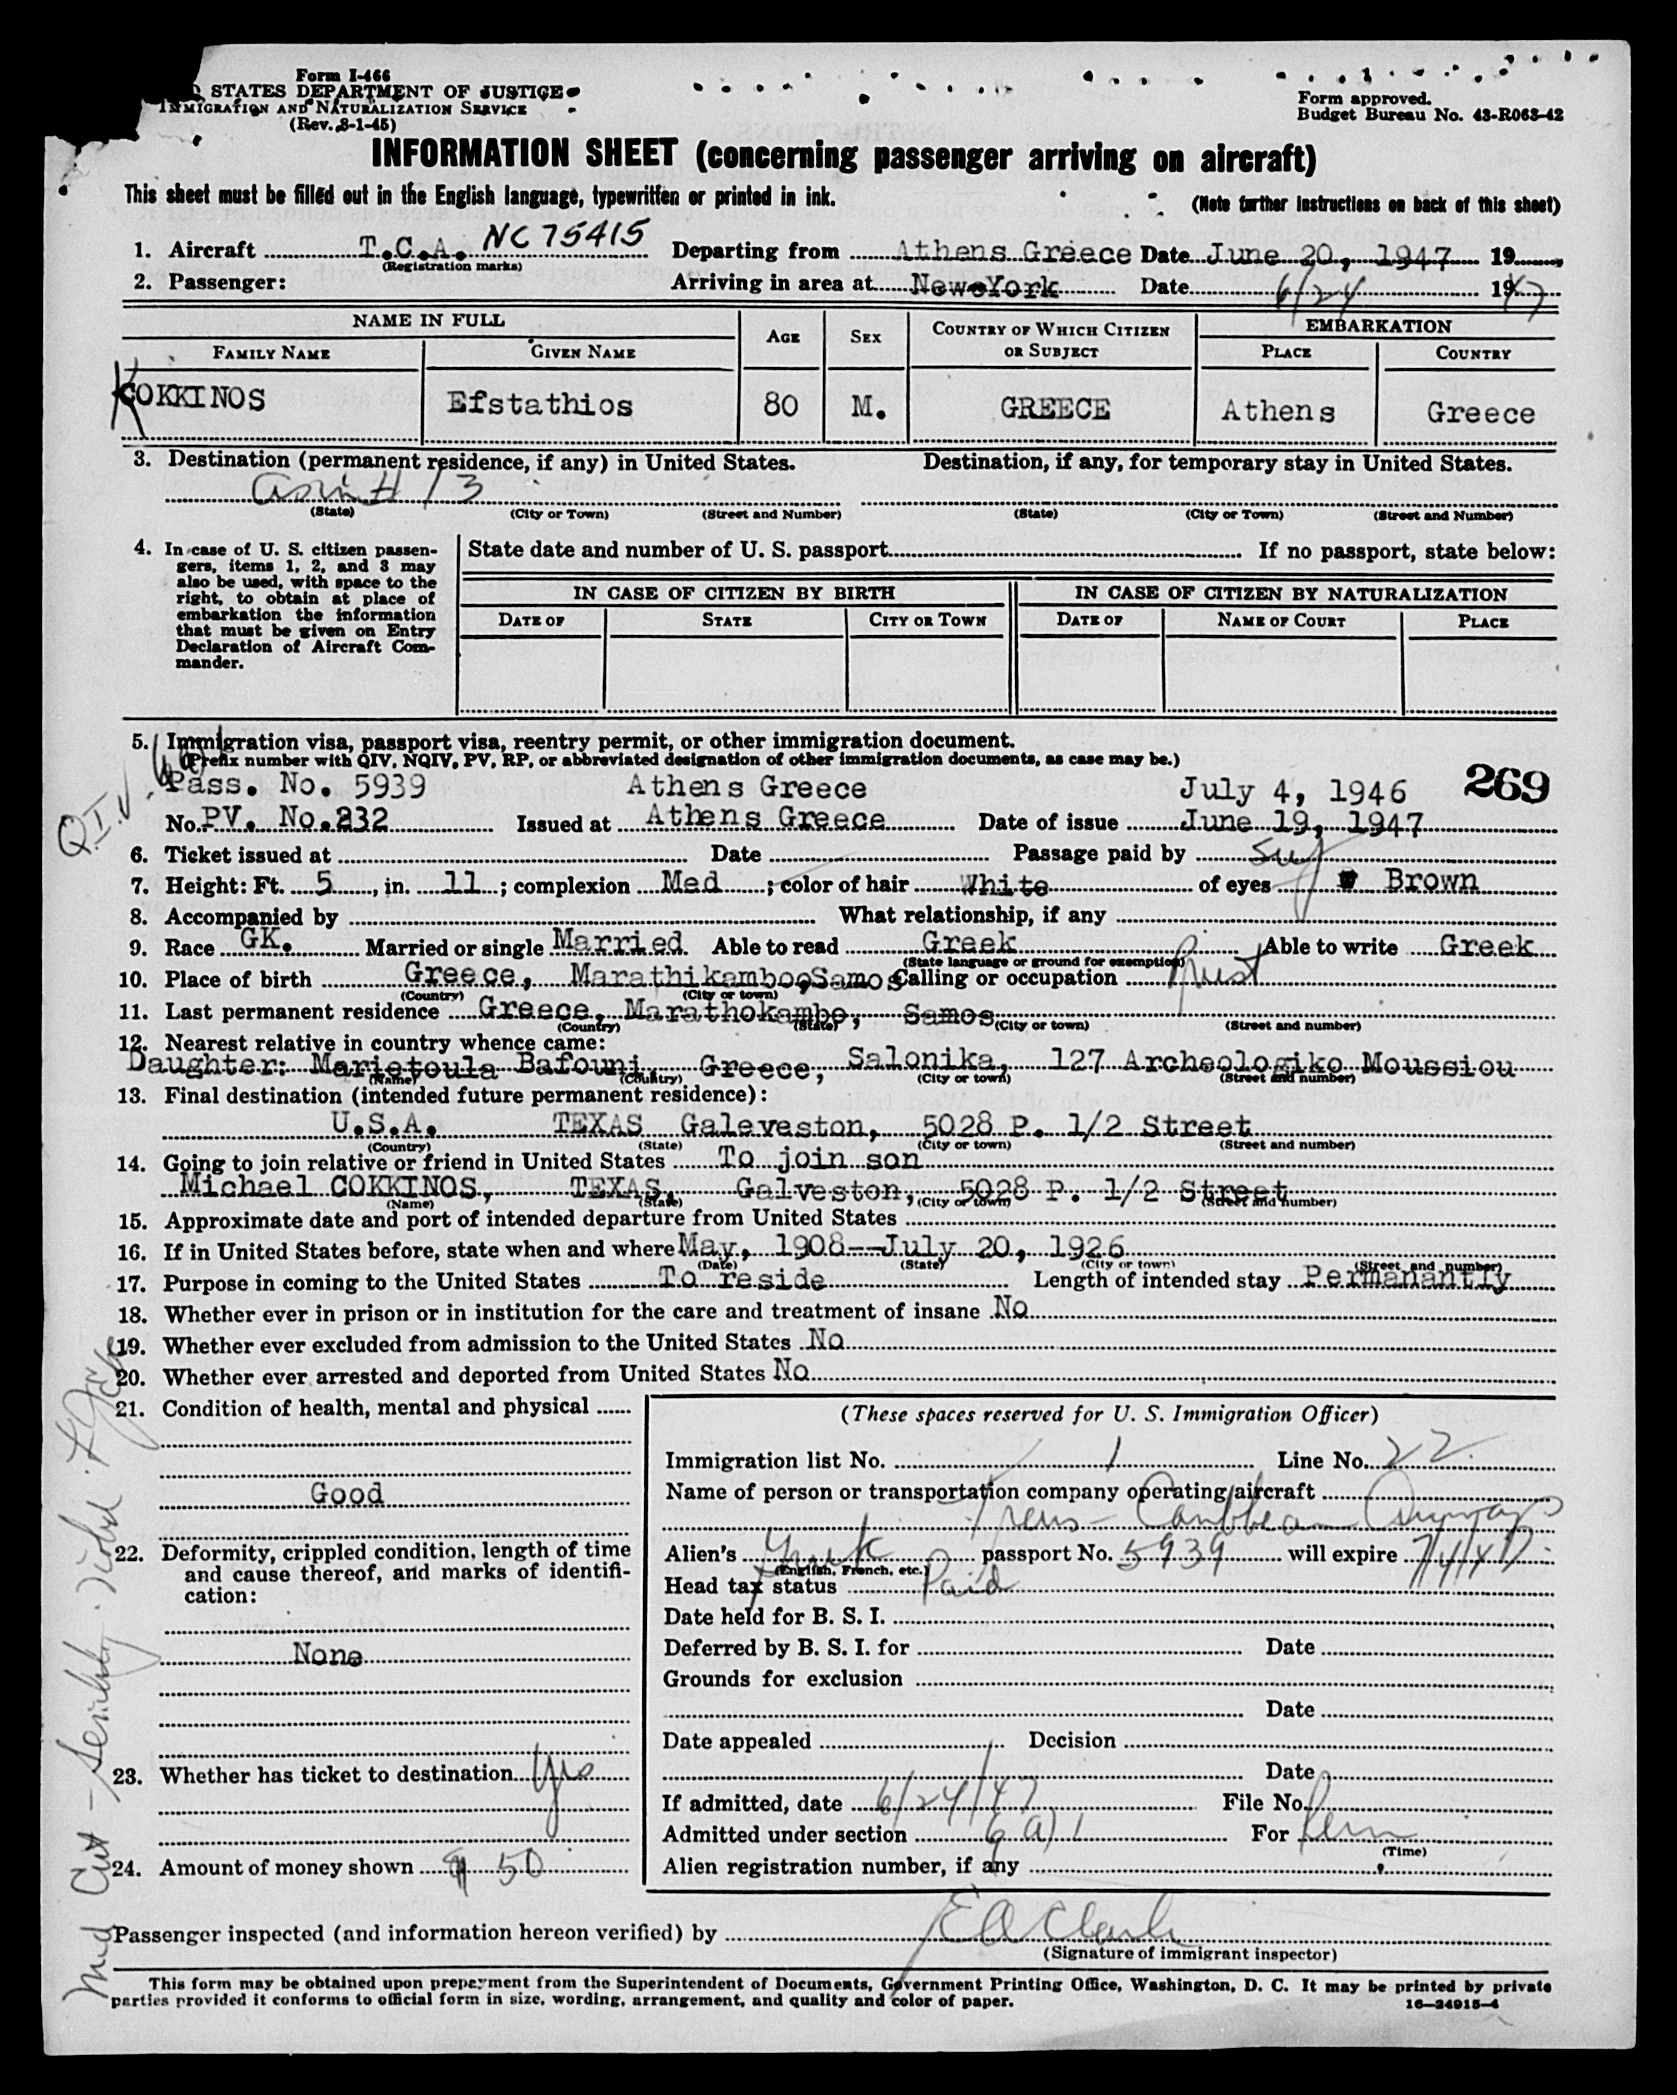 Form I-466
STATES DEPARTMENT OF JUSTICE
IMMIGRATION AND NATURALIZATION SERVICE
(Rev. 8-1-45)
Form approved.
Budget Bureau No. 43-R063-42
INFORMATION SHEET (concerning passenger arriving on aircraft)
This sheet must be filled out in the English language, typewritten or printed in ink.
(Note further instructions on back of this sheet)
1. Aircraft T.C.A. NC 75415 Departing from Athens Greece Date June 20, 1947 19
(Registration marks)
2. Passenger: Arriving in area at New York Date 6/24 1947
NAME IN FULL AGE SEX COUNTRY OF WHICH CITIZEN OR SUBJECT EMBARKATION
FAMILY NAME GIVEN NAME PLACE COUNTRY
KOKKINOS Efstathios 80 M. GREECE Athens Greece
3. Destination (permanent residence, if any) in United States. Destination, if any, for temporary stay in United States.
# 13
(State) (City or Town) (Street and Number) (State) (City or Town) (Street and Number)
4. In case of U. S. citizen passen-
gers, items 1, 2, and 3 may
also be used, with space to the
right, to obtain at place of
embarkation the information
that must be given on Entry
Declaration of Aircraft Com-
mander.
State date and number of U. S. passport If no passport, state below:
IN CASE OF CITIZEN BY BIRTH IN CASE OF CITIZEN BY NATURALIZATION
DATE OF STATE CITY OR TOWN DATE OF NAME OF COURT PLACE
5. Immigration visa, passport visa, reentry permit, or other immigration document.
(Prefix number with QIV, NQIV, PV, RP, or abbreviated designation of other immigration documents, as case may be.)
Q.I.V.
Pass. No. 5939 Athens Greece July 4, 1946 269
No. PV. No.232 Issued at Athens Greece Date of issue June 19, 1947
6. Ticket issued at Date Passage paid by
7. Height: Ft. 5, in. 11; complexion Med; color of hair White of eyes Brown
8. Accompanied by What relationship, if any
9. Race GK. Married or single Married Able to read Greek Able to write Greek
(State language or ground for exemption)
10. Place of birth Greece, Marathikamboo, Samos Calling or occupation Priest
(Country) (City or town)
11. Last permanent residence Greece, Marathokambo, Samos
(Country) (State) (City or town) (Street and number)
12. Nearest relative in country whence came:
Daughter: Marietoula Bafouni, Greece, Salonika, 127 Archeologiko Moussiou
(Name) (Country) (City or town) (Street and number)
13. Final destination (intended future permanent residence):
U.S.A. TEXAS Galeveston, 5028 P. 1/2 Street
(Country) (State) (City or town) (Street and number)
14. Going to join relative or friend in United States To join son
Michael COKKINOS, TEXAS, Galveston, 5028 P. 1/2 Street
(Name) (State) (City or town) (Street and number)
15. Approximate date and port of intended departure from United States
16. If in United States before, state when and where May, 1908--July 20, 1926
(Date) (State) (City or town) (Street and number)
17. Purpose in coming to the United States To reside Length of intended stay Permanantly
18. Whether ever in prison or in institution for the care and treatment of insane No
19. Whether ever excluded from admission to the United States No
20. Whether ever arrested and deported from United States No
21. Condition of health, mental and physical
Good
22. Deformity, crippled condition, length of time
and cause thereof, and marks of identifi-
cation:
None
23. Whether has ticket to destination yes
24. Amount of money shown $ 50
Med Cert - Senility
(These spaces reserved for U. S. Immigration Officer)
Immigration list No. 1 Line No. 22
Name of person or transportation company operating aircraft
Trans-Caribbean Airways
Alien's Greek passport No. 5939 will expire 7/4/47
(English, French, etc.)
Head tax status Paid
Date held for B. S. I.
Deferred by B. S. I. for Date
Grounds for exclusion
Date
Date appealed Decision
Date
If admitted, date 6/24/47 File No.
Admitted under section 6 a) 1 For Perm
(Time)
Alien registration number, if any
Passenger inspected (and information hereon verified) by E A Clark
(Signature of immigrant inspector)
This form may be obtained upon prepayment from the Superintendent of Documents, Government Printing Office, Washington, D. C. It may be printed by private
parties provided it conforms to official form in size, wording, arrangement, and quality and color of paper.
16—24915-4